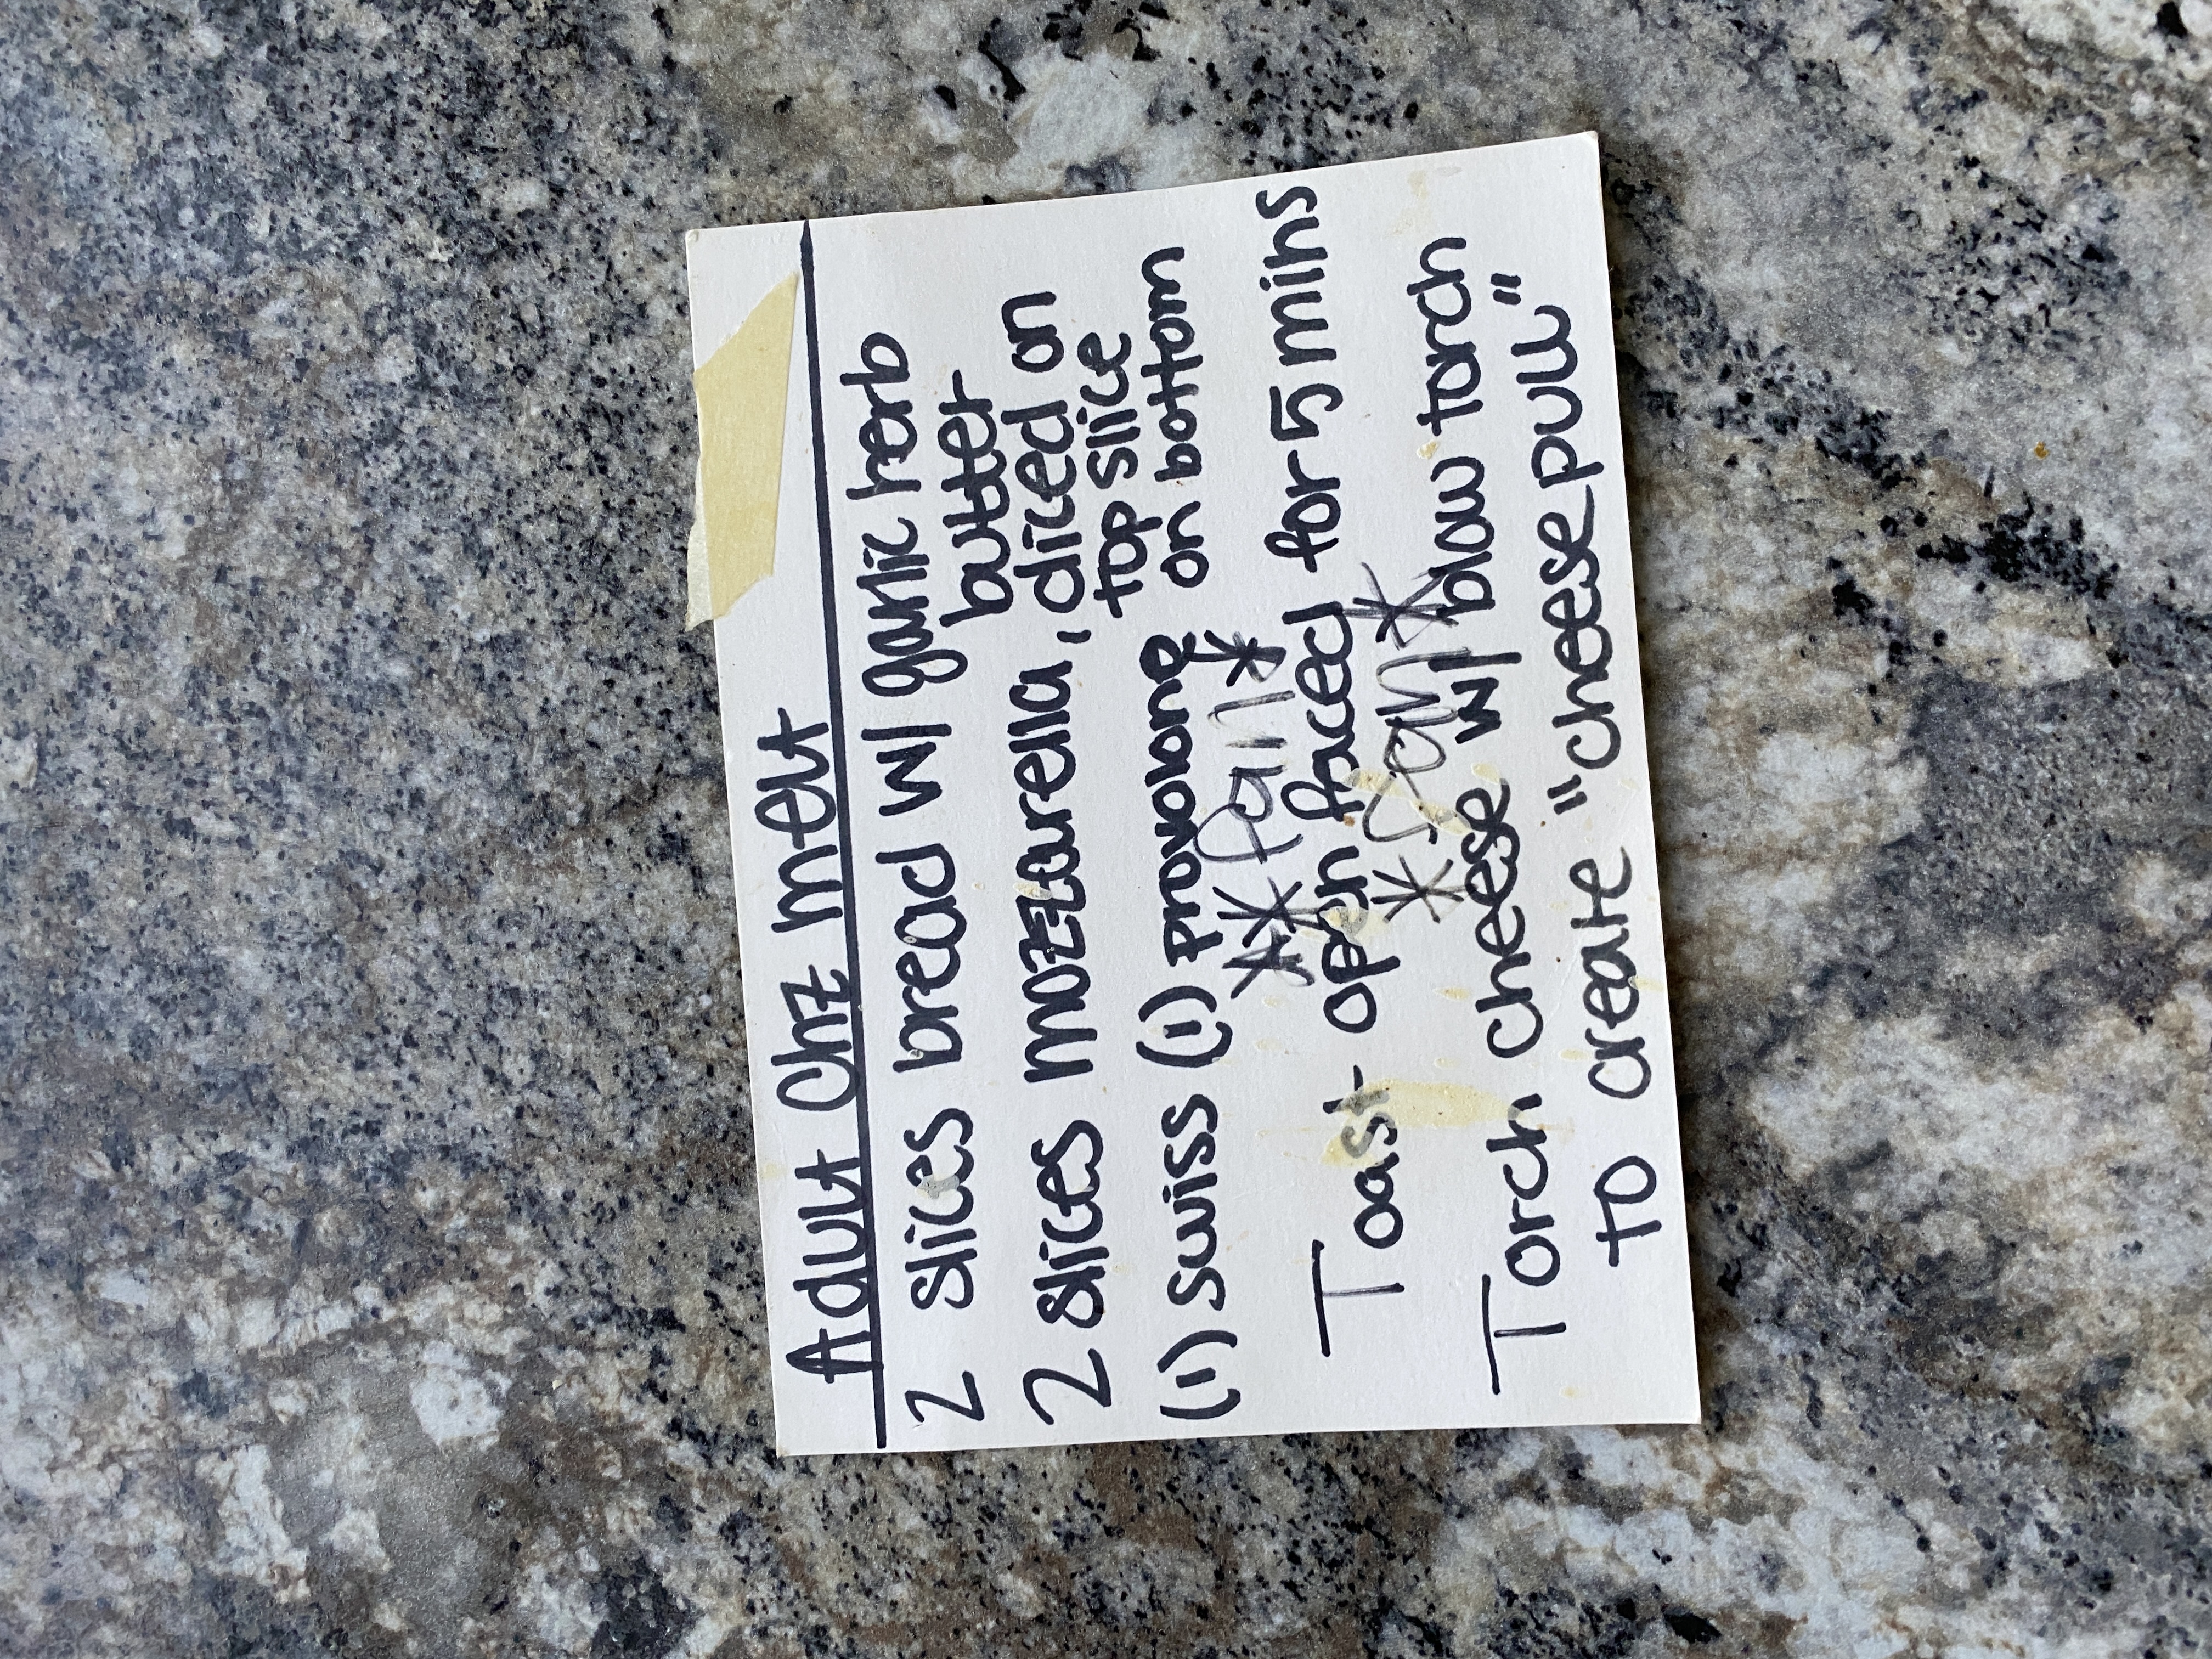 Adult Chz melt
2 slices bread w/ garlic herb
butter
2 slices mozzarella, diced on
top slice
(1) swiss (1) provolone on bottom
** Pan *
Toast open faced for 5 mins
*
Torch cheese w/ blow torch
to create "cheese pull"